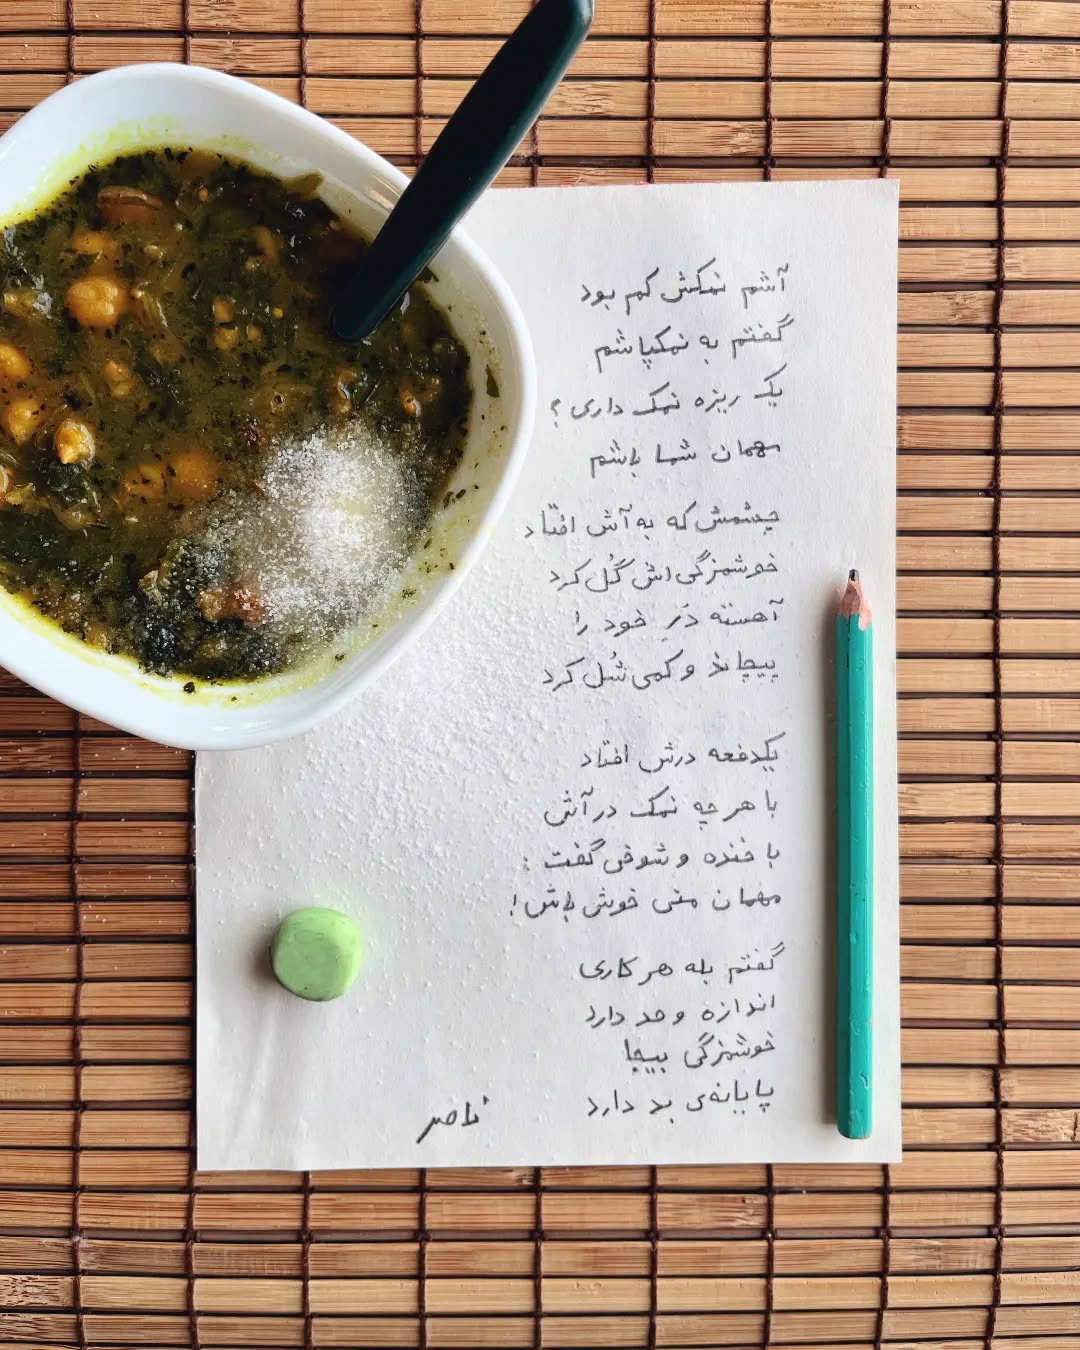 آشم نمکش کم بود
گفتم به نمکپاشم
یک ریزه نمک داری؟
مهمان شما باشم
چشمش که به آش افتاد
خوشمزگی‌اش گُل کرد
آهسته دَرِ خود را
پیچاند و کمی شُل کرد
یکدفعه درش افتاد
با هر چه نمک در آش
با خنده و شوخی گفت:
مهمان منی خوش باش!
گفتم بله هر کاری
اندازه و حد دارد
خوشمزگی بیجا
پایانه‌ی بد دارد
ناصر